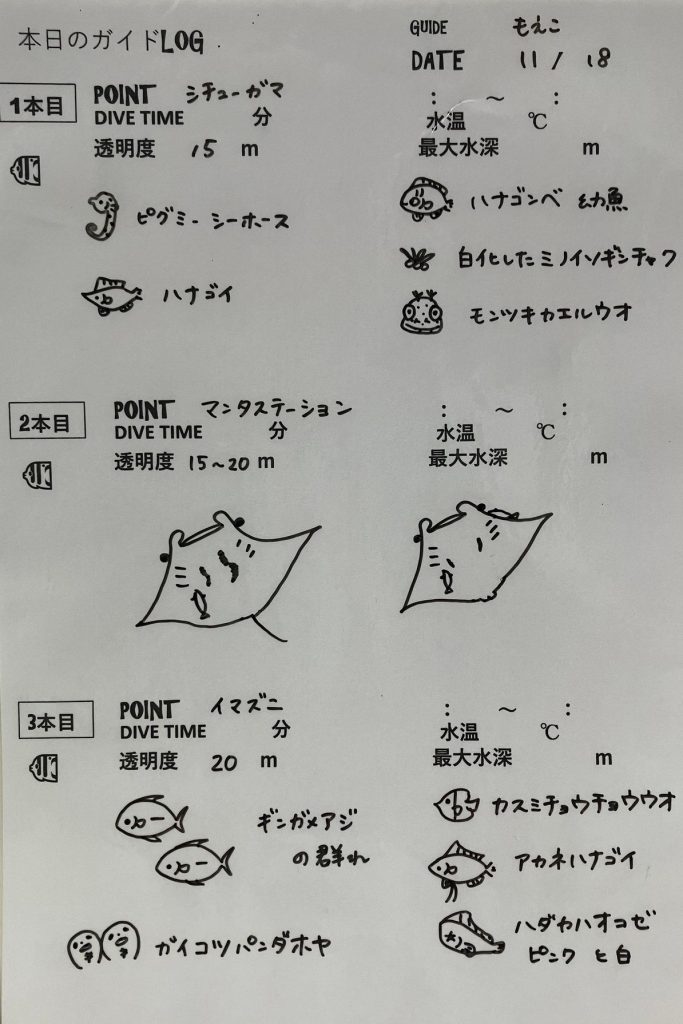 本日のガイドLOG
GUIDE もえこ
DATE 11 / 18
1本目
POINT シチューガマ
DIVE TIME 分
透明度 15 m
: ～ :
水温 ℃
最大水深 m
ピグミーシーホース
ハナゴイ
ハナゴンベ 幼魚
白化したミノイソギンチャク
モンツキカエルウオ
2本目
POINT マンタステーション
DIVE TIME 分
透明度 15～20 m
: ～ :
水温 ℃
最大水深 m
3本目
POINT イマズニ
DIVE TIME 分
透明度 20 m
: ～ :
水温 ℃
最大水深 m
ギンガメアジ
の群れ
ガイコツパンダホヤ
カスミチョウチョウウオ
アカネハナゴイ
ハダカハオコゼ
ピンクと白